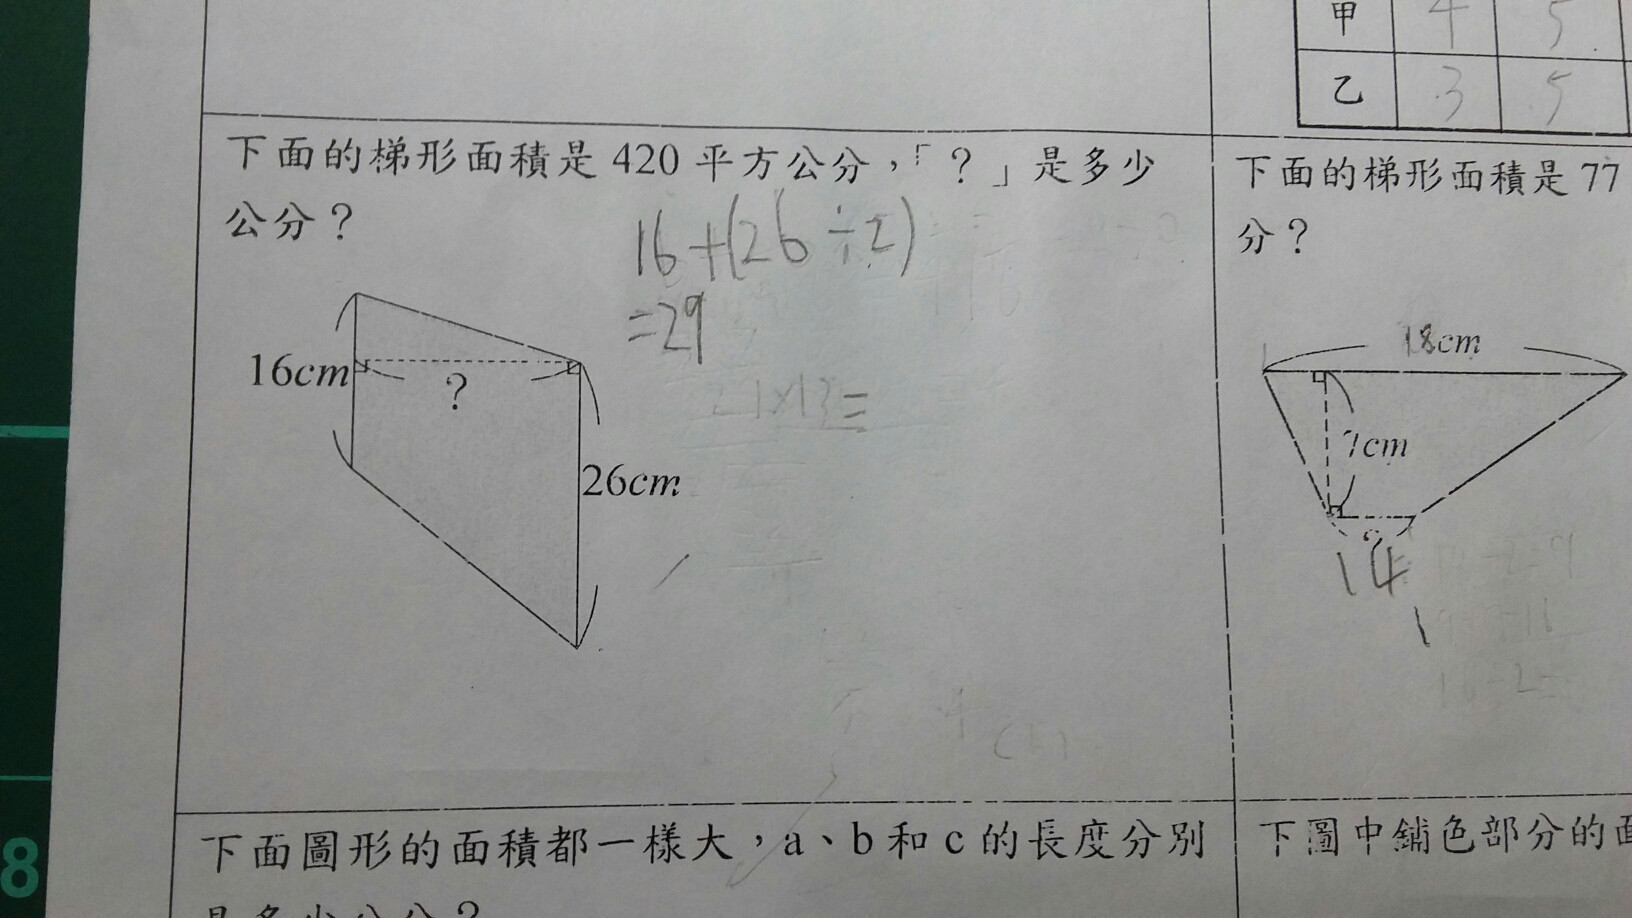 甲 4 5
乙 3 5
下面的梯形面積是 420 平方公分，「？」是多少
公分？
16+(26÷2)
=29
16cm
?
26cm
下面的梯形面積是 77
分？
18cm
7cm
?
14
下面圖形的面積都一樣大，a、b 和 c 的長度分別
是多少公分？
下圖中鋪色部分的面
8